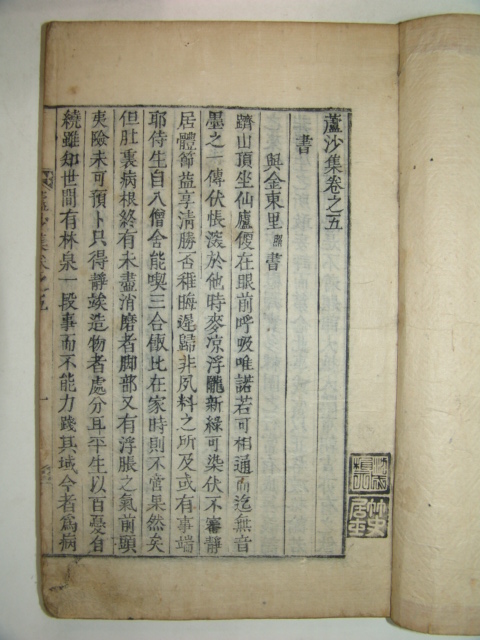 蘆沙集卷之五
書
與金東里書
躋山頂坐仙廬優在眼前呼吸唯諾若可相通而迄無音
墨之一傳伏悵深於他時麥凉浮隴新綠可染伏不審靜
居體節益享淸勝否稚晦遲歸非夙料之所及或有事端
耶侍生自入僧舍能喫三合飯比在家時則不啻果然矣
但肚裏病根終有未盡消磨者脚部又有浮脹之氣前頭
夷險未可預卜只得靜竢造物者處分耳平生以百憂自
繞雖知世間有林泉一段事而不能力踐其域今者爲病
蘆沙集卷之五
一